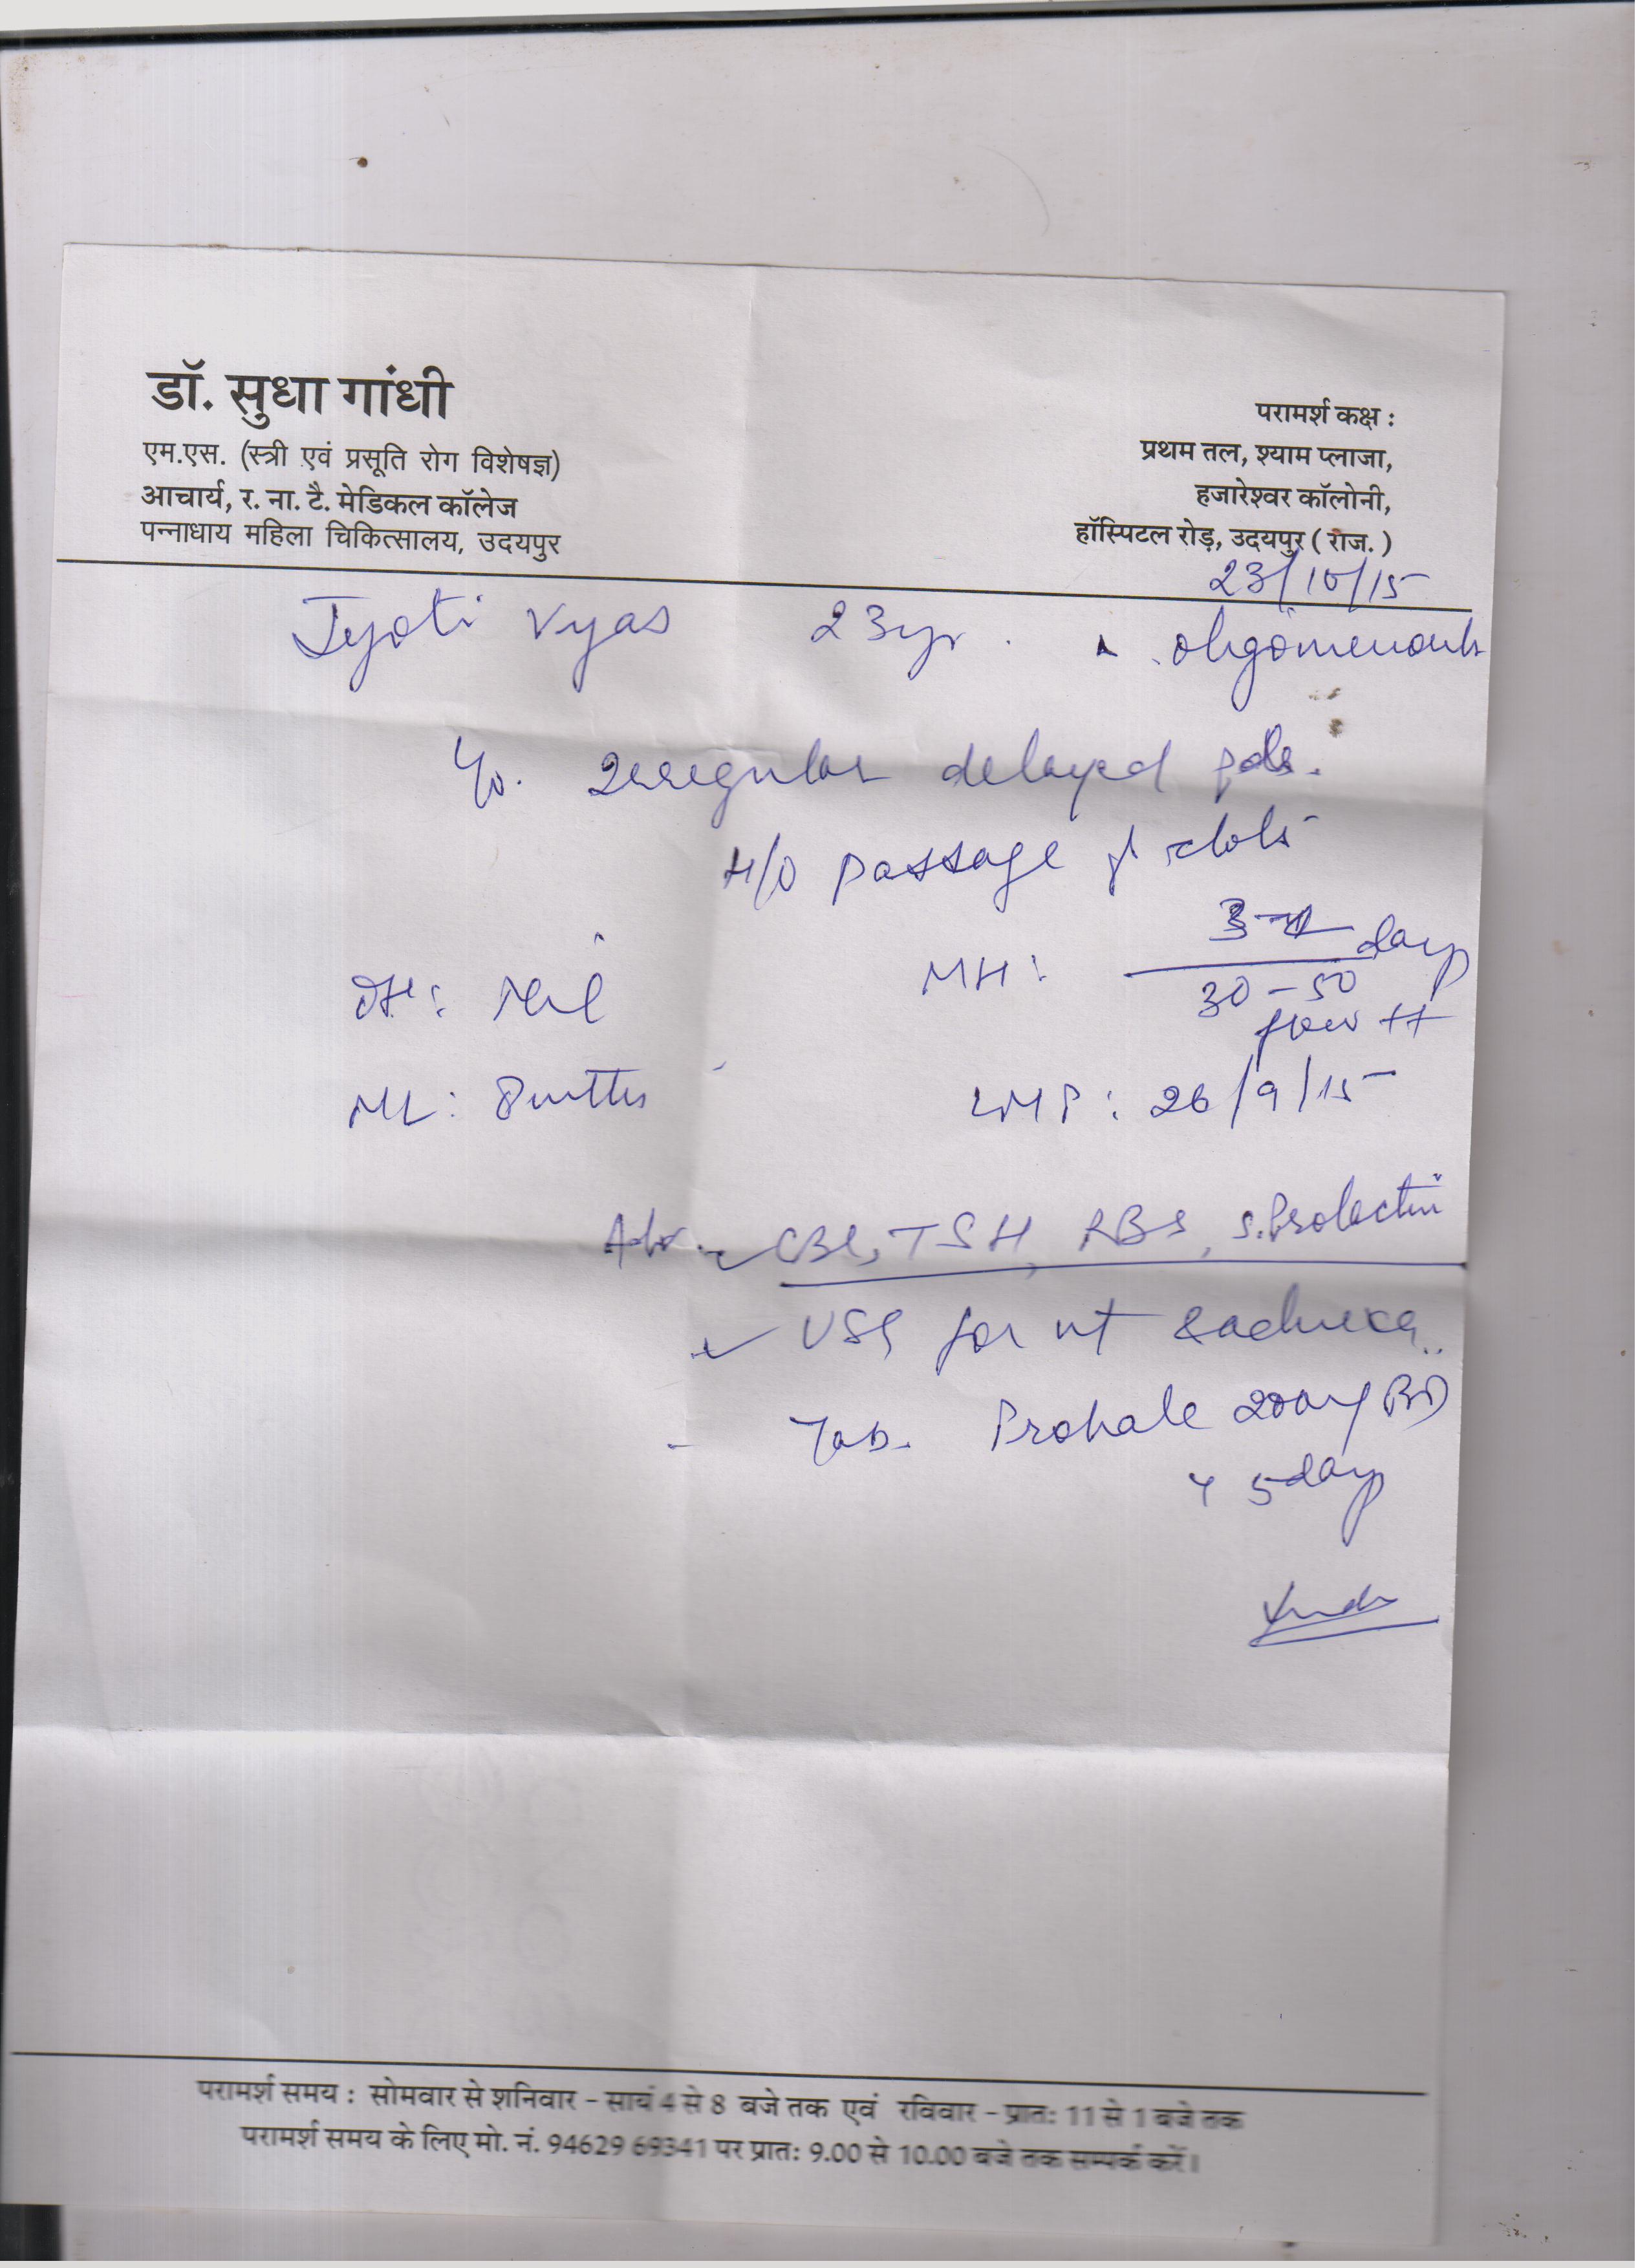 डॉ. सुधा गांधी
एम.एस. (स्त्री एवं प्रसूति रोग विशेषज्ञ)
आचार्य, र. ना. टै. मेडिकल कॉलेज
पन्नाधाय महिला चिकित्सालय, उदयपुर
परामर्श कक्ष :
प्रथम तल, श्याम प्लाजा,
हजारेश्वर कॉलोनी,
हॉस्पिटल रोड़, उदयपुर ( राज. )
23/10/15
Jyoti Vyas 23yr.
C/o. Irregular delayed pds.
H/O passage of clots
MH: days
30-50
flow ++
OH: Nil
ML: 8 mths
LMP: 26/9/15
Adv. CBC, TSH, RBS, S.Prolactin
USG for ut & adnexa
- Tab. 200mg BD
x 5 days
परामर्श समय : सोमवार से शनिवार - सायं 4 से 8 बजे तक एवं रविवार - प्रातः 11 से 1 बजे तक
परामर्श समय के लिए मो. नं. 94629 69341 पर प्रातः 9.00 से 10.00 बजे तक सम्पर्क करें।